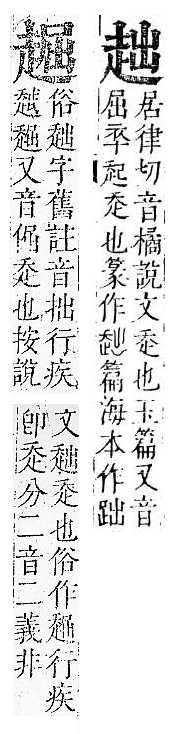 趉
居律切音橘說文走也玉篇又音
屈卒起走也篆作趉篇海本作䟣
䞷
俗趉字舊註音拙行疾
趉䞷又音倔走也按說
文趉走也俗作䞷行疾
即走分二音二義非